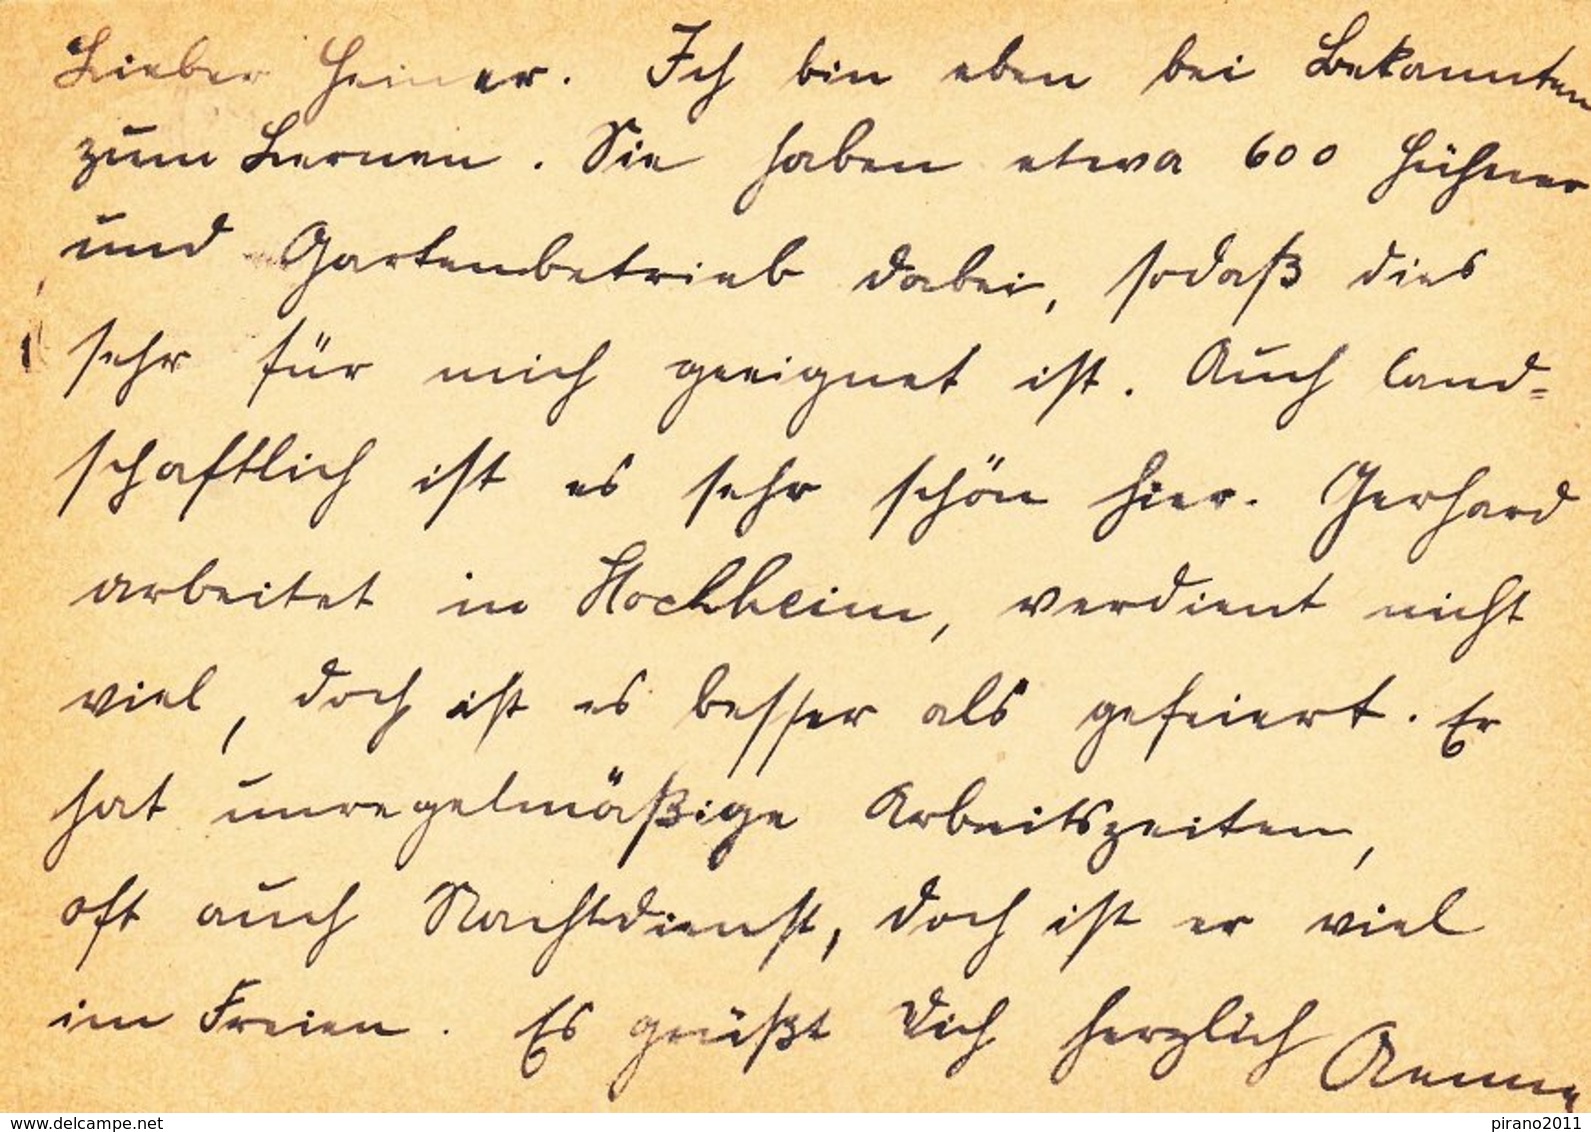 Lieber Heiner. Ich bin eben bei Bekannten
zum Lernen. Sie haben etwa 600 Hühner
und Gartenbetrieb dabei, sodaß dies
sehr für mich geeignet ist. Auch land=
schaftlich ist es sehr schön hier. Gerhard
arbeitet in Hochheim, verdient nicht
viel, doch ist es besser als gefeiert. Er
hat unregelmäßige Arbeitszeiten,
oft auch Nachtdienst, doch ist er viel
im Freien. Es grüßt Dich herzlich Aenne
www.delcampe.net pirano2011